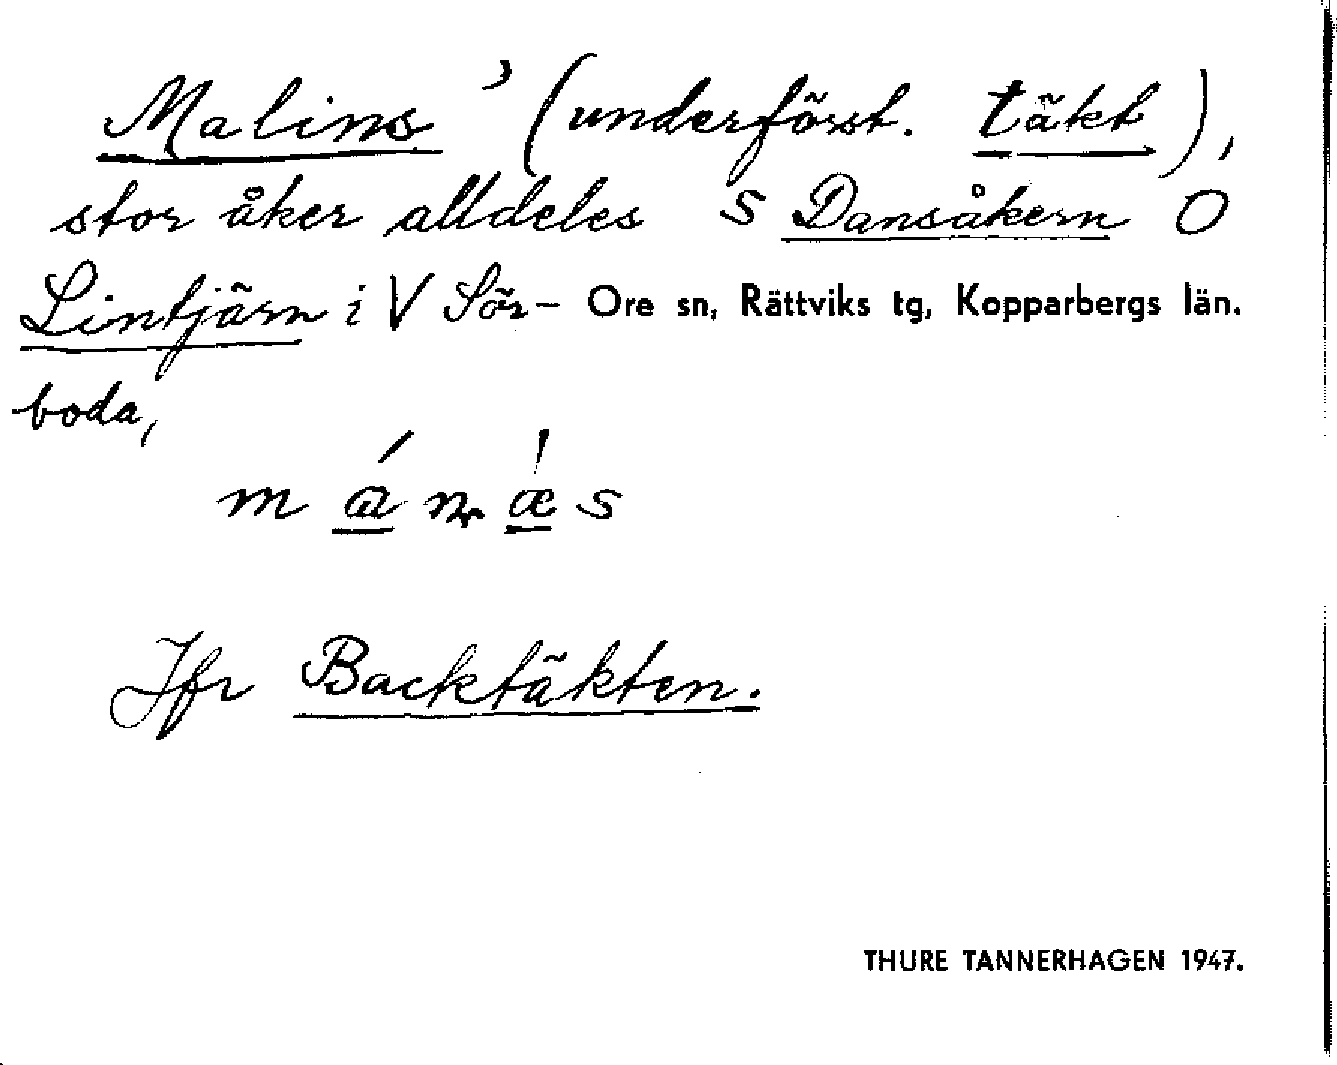 Malins’ (underförst. täkt),
stor åker alldeles S Dansåkern O
Lintjärn i V Sör- Ore sn, Rättviks tg, Kopparbergs län.
boda,
Jfr Backtäkten.
THURE TANNERHAGEN 1947.